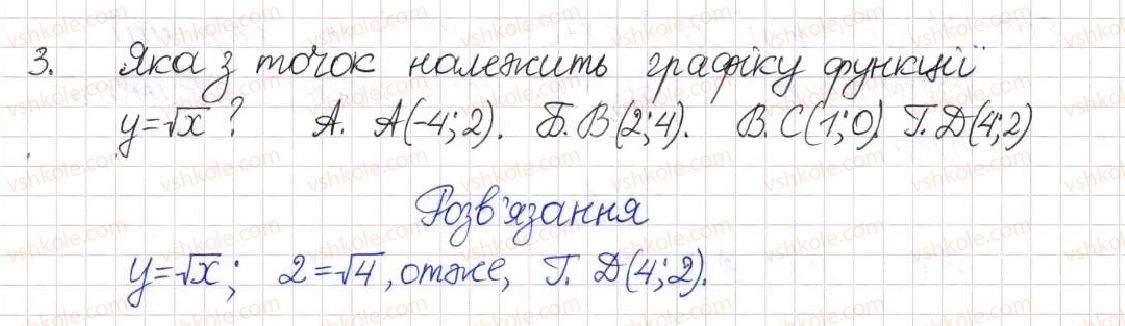 3. Яка з точок належить графіку функції
y=√x ? А. A(-4; 2). Б. B(2; 4). В. C(1; 0) Г. D(4; 2)
Розв'язання
y=√x; 2=√4, отже, Г. D(4; 2).